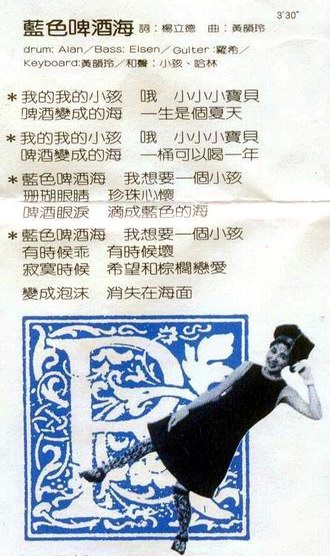 3'30"
藍色啤酒海 詞：楊立德 曲：黃韻玲
drum: Alan／Bass: Elsen／Guiter:羅希／
Keyboard:黃韻玲／和聲：小孩、哈林
＊我的我的小孩 哦 小小小寶貝
啤酒變成的海 一生是個夏天
＊我的我的小孩 哦 小小小寶貝
啤酒變成的海 一桶可以喝一年
＊藍色啤酒海 我想要一個小孩
珊瑚眼睛 珍珠心懷
啤酒眼淚 滴成藍色的海
＊藍色啤酒海 我想要一個小孩
有時候乖 有時候壞
寂寞時候 希望和棕櫚戀愛
變成泡沫 消失在海面